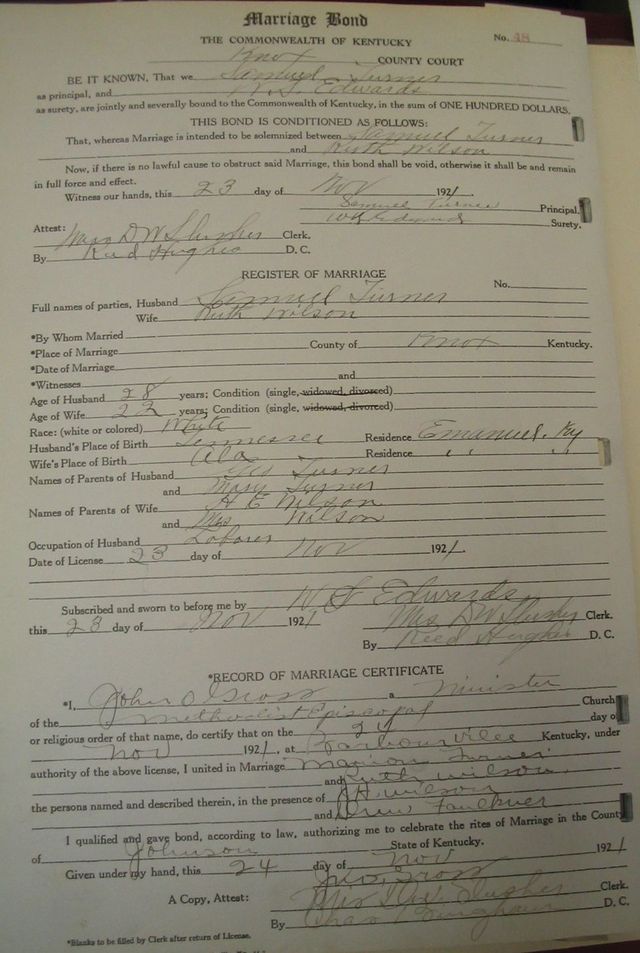 Marriage Bond
No. 48
THE COMMONWEALTH OF KENTUCKY
Knox COUNTY COURT
BE IT KNOWN, That we Samuel Turner
as principal, and W. S. Edwards
as surety, are jointly and severally bound to the Commonwealth of Kentucky, in the sum of ONE HUNDRED DOLLARS.
THIS BOND IS CONDITIONED AS FOLLOWS:
That, whereas Marriage is intended to be solemnized between Samuel Turner
and Ruth Wilson
Now, if there is no lawful cause to obstruct said Marriage, this bond shall be void, otherwise it shall be and remain
in full force and effect.
Witness our hands, this 23 day of Nov 1921.
Samuel Turner Principal.
Edwards Surety.
Attest:
Miss D W Slusher Clerk.
By Reed Hughes D. C.
REGISTER OF MARRIAGE
No.
Full names of parties, Husband Samuel Turner
Wife Ruth Wilson
*By Whom Married
*Place of Marriage County of Knox Kentucky.
*Date of Marriage
*Witnesses and
Age of Husband 28 years; Condition (single, widowed, divorced)
Age of Wife 22 years; Condition (single, widowed, divorced)
Race: (white or colored) White
Husband's Place of Birth Tennessee Residence Emanuel, Ky
Wife's Place of Birth Ala Residence " "
Names of Parents of Husband Turner
and Mary Turner
Names of Parents of Wife H E Wilson
and Mrs Wilson
Occupation of Husband Laborer
Date of License 23 day of Nov 1921.
Subscribed and sworn to before me by W S Edwards
this 23 day of Nov 1921
Mrs D W Slusher Clerk.
By Reed Hughes D. C.
*RECORD OF MARRIAGE CERTIFICATE
*I, John O Gross a Minister
of the Methodist Episcopal Church
or religious order of that name, do certify that on the 24 day of
Nov 1921, at Barbourville Kentucky, under
authority of the above license, I united in Marriage Marion Turner
and Ruth Wilson,
the persons named and described therein, in the presence of Wilson
and Drew Faulkner
I qualified and gave bond, according to law, authorizing me to celebrate the rites of Marriage in the County
of Johnson State of Kentucky.
Given under my hand, this 24 day of Nov 1921
Jno. O. Gross
A Copy, Attest: Slusher Clerk.
By Chas Bingham D. C.
*Blanks to be filled by Clerk after return of License.